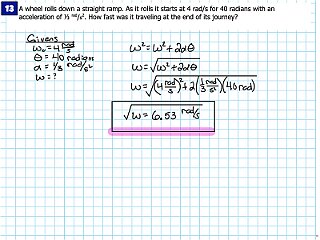 13 A wheel rolls down a straight ramp. As it rolls it starts at 4 rad/s for 40 radians with an
acceleration of ⅓ rad/s². How fast was it traveling at the end of its journey?
Givens
ω₀ = 4 rad/s
θ = 40 radians
α = ⅓ rad/s²
ω = ?
ω² = ω² + 2αθ
ω = √(ω² + 2αθ)
ω = √((4 rad/s)² + 2(⅓ rad/s²)(40 rad))
√ω = 6.53 rad/s